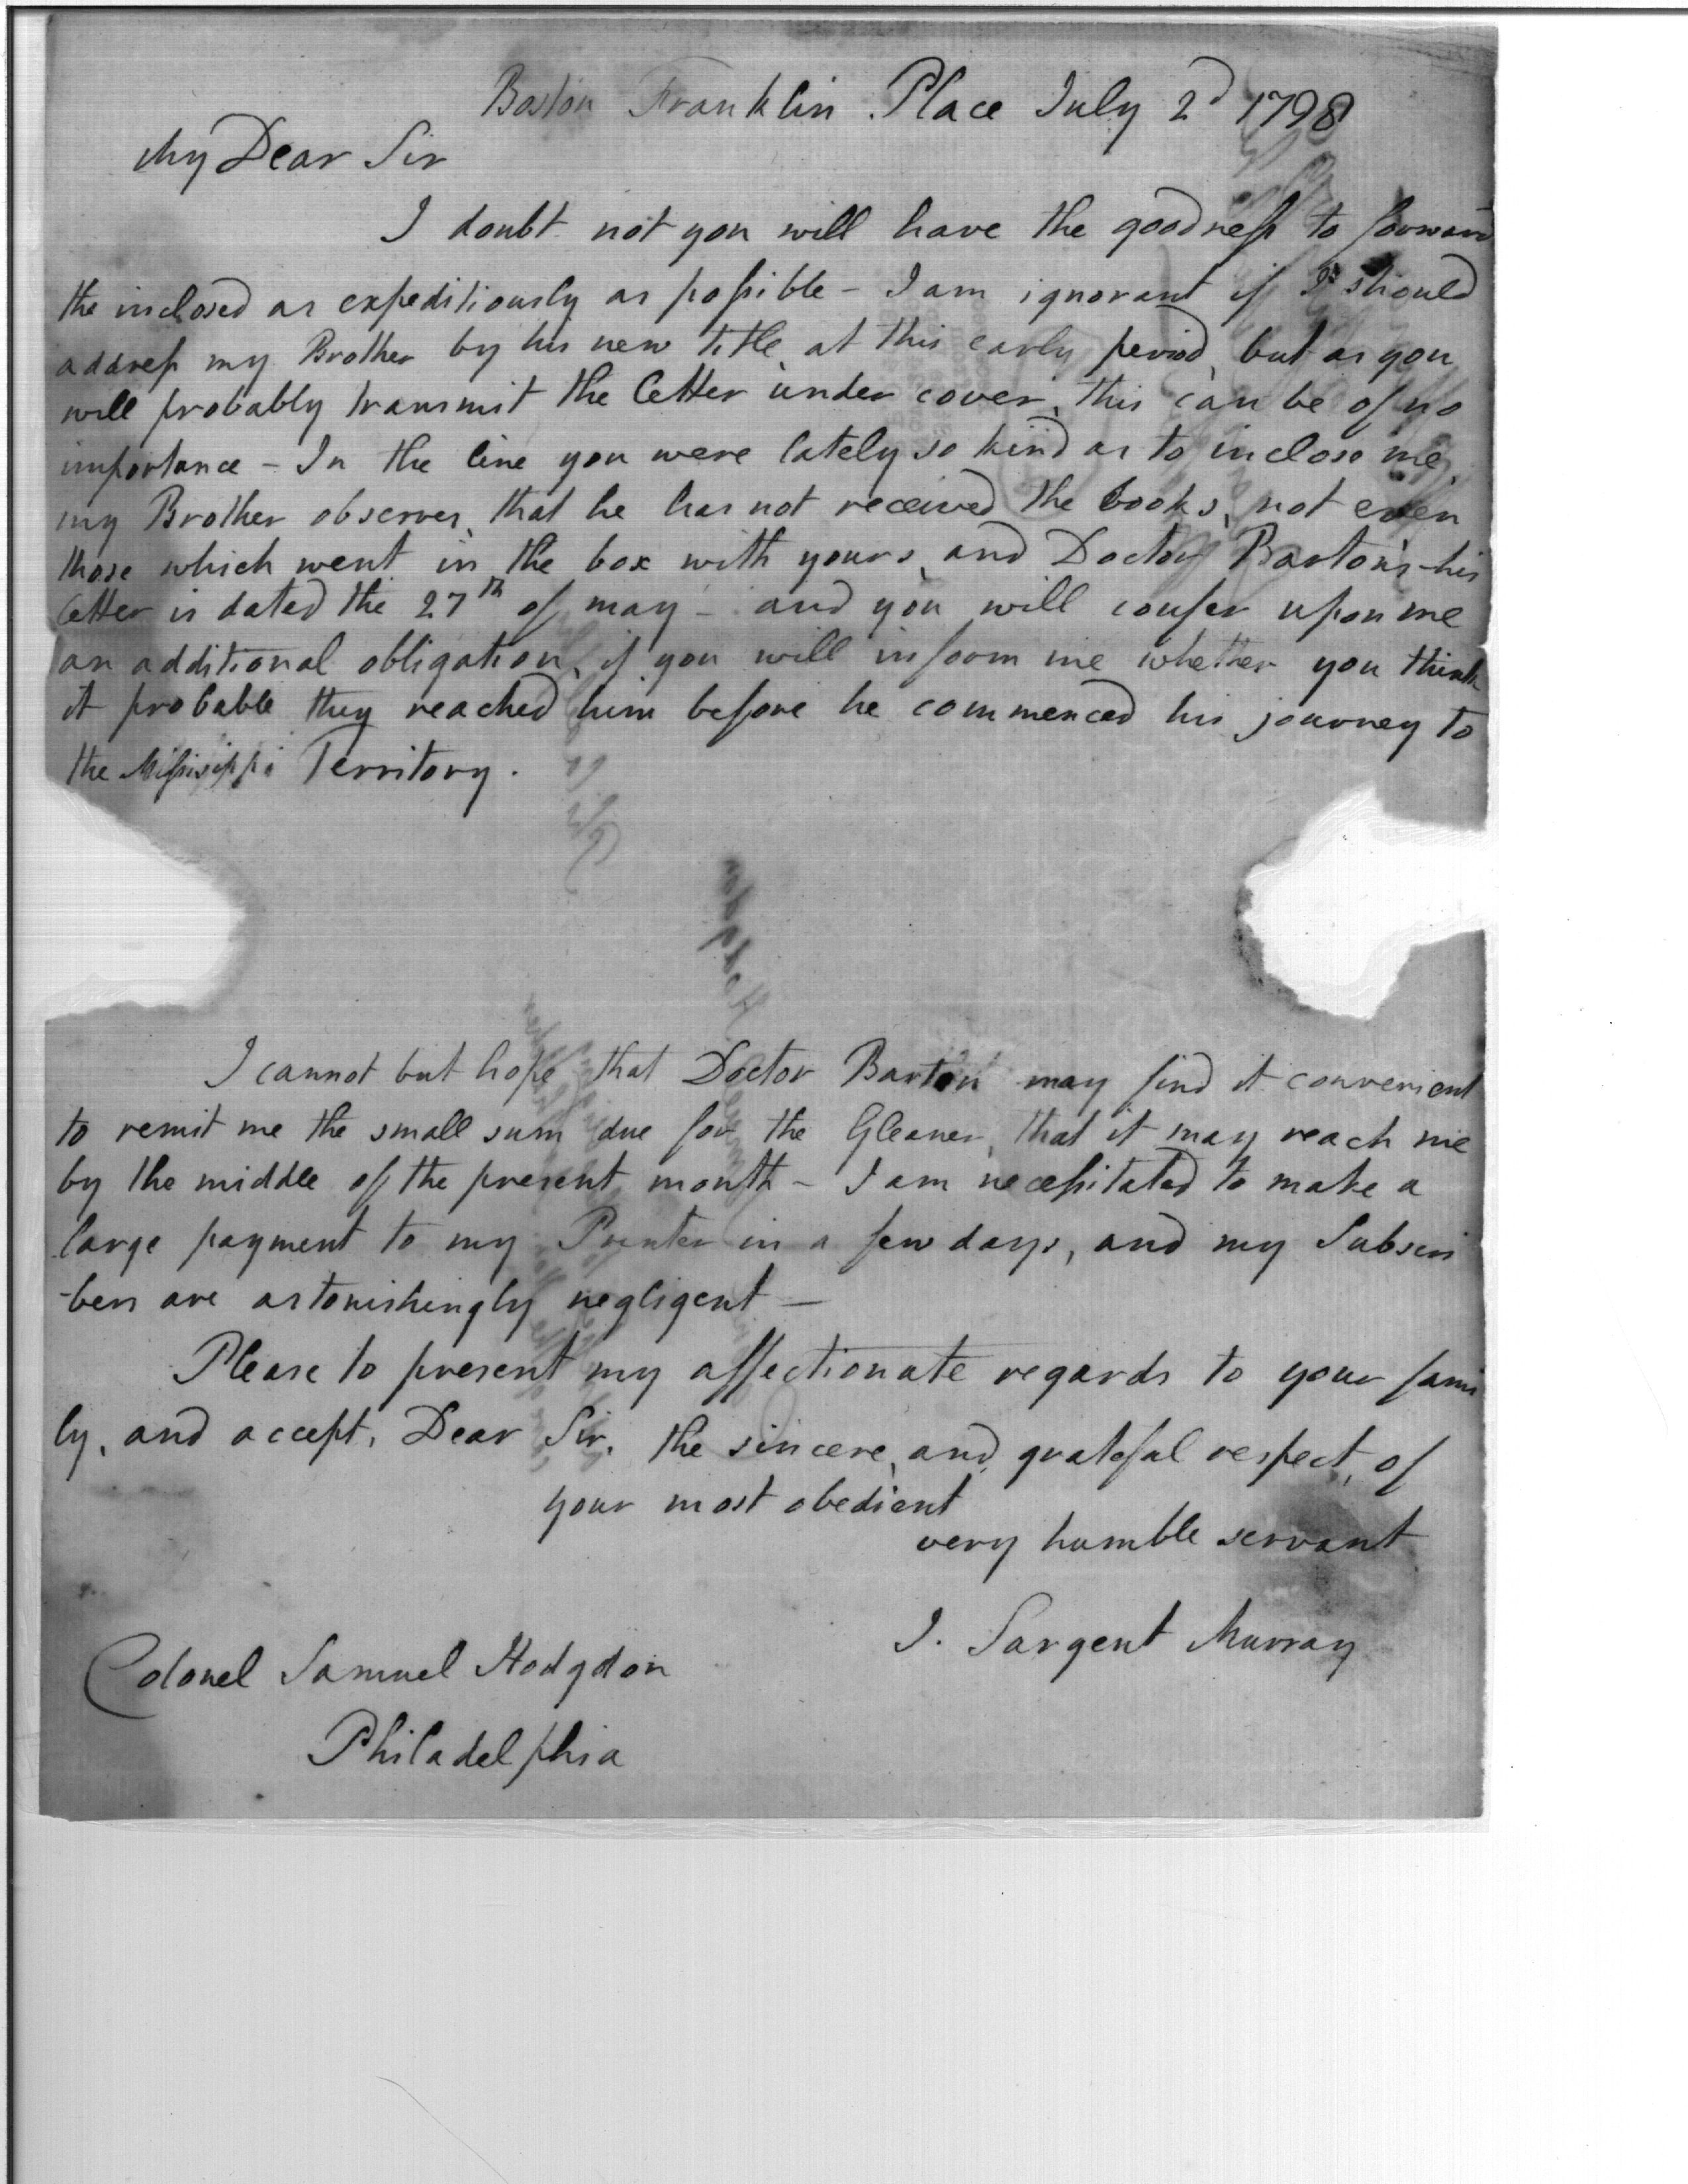 Boston Franklin Place July 2d 1798
My Dear Sir
I doubt not you will have the goodness to forward
the inclosed as expeditiously as possible - I am ignorant if I should
address my Brother by his new title, at this early period, but as you
will probably transmit the letter under cover, this can be of no
importance - In the line you were lately so kind as to inclose me,
my Brother observes, that he has not received the books, not even
those which went in the box with yours, and Doctor Barton's - his
letter is dated the 27th of may - and you will confer upon me
an additional obligation, if you will inform me whether you think
it probable they reached him before he commenced his journey to
the Missisippi Territory.
I cannot but hope that Doctor Barton may find it convenient
to remit me the small sum due for the Gleaner, that it may reach me
by the middle of the present month - I am necessitated to make a
large payment to my Printer in a few days, and my Subscri
-bers are astonishingly negligent -
Please to present my affectionate regards to your fami
ly, and accept, Dear Sir, the sincere, and grateful respect, of
your most obedient
very humble servant
J. Sargent Murray
Colonel Samuel Hodgdon
Philadelphia